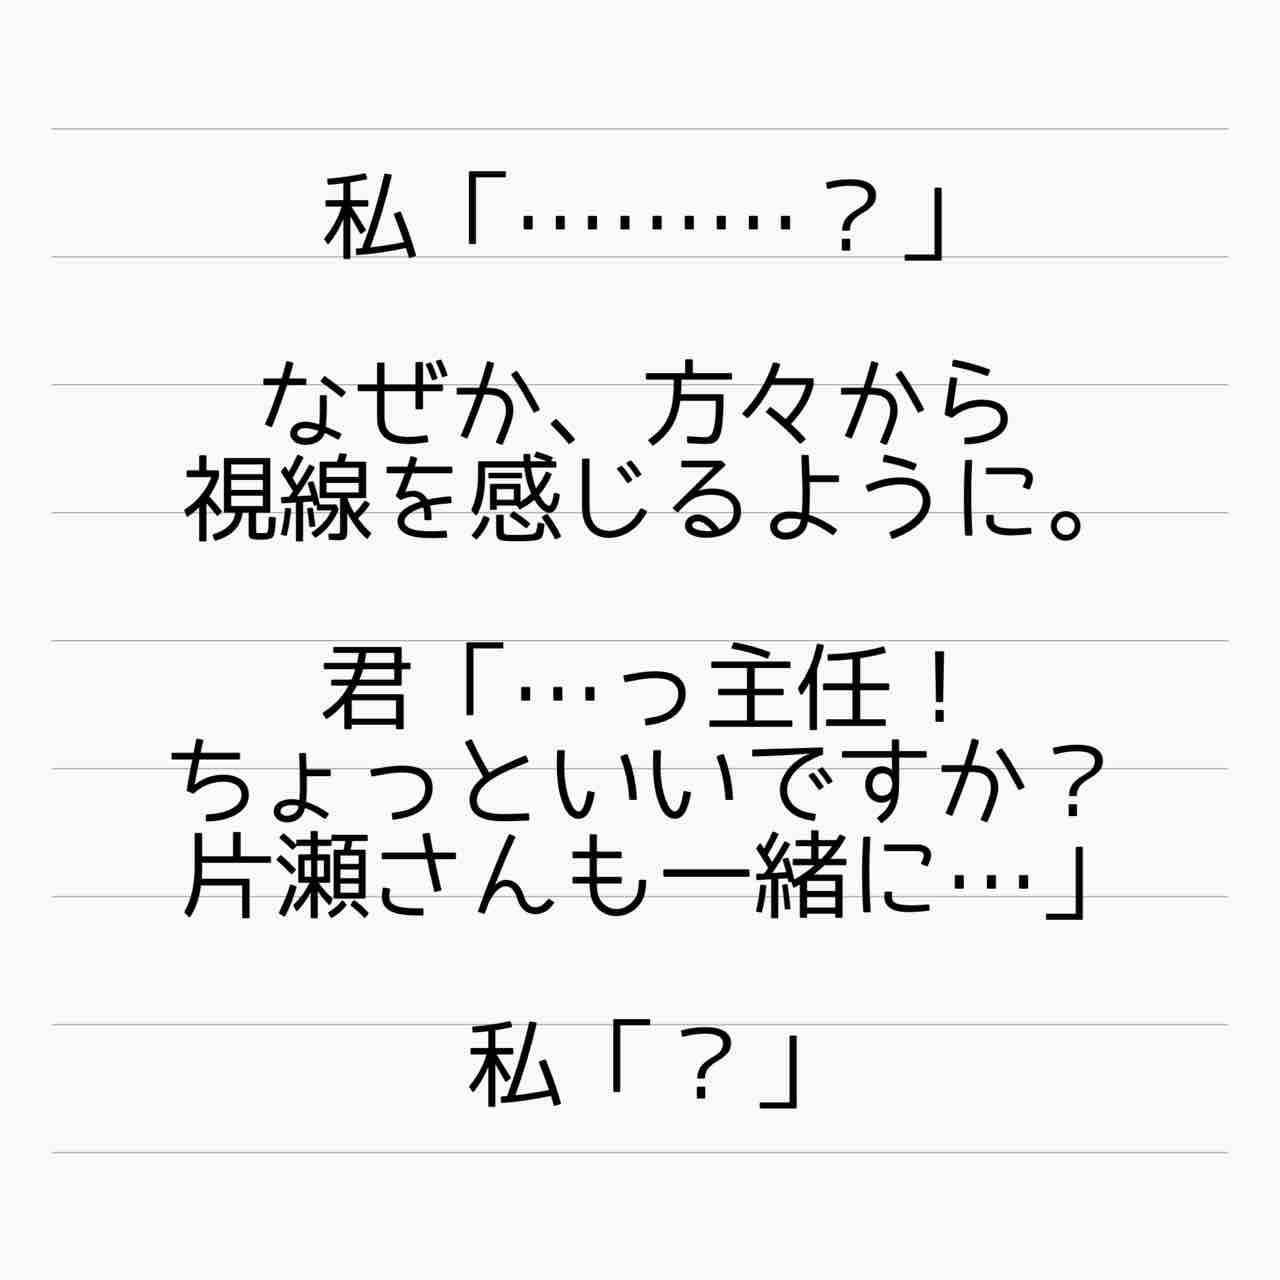 私「………？」
なぜか、方々から
視線を感じるように。
君「…っ主任！
ちょっといいですか？
片瀬さんも一緒に…」
私「？」